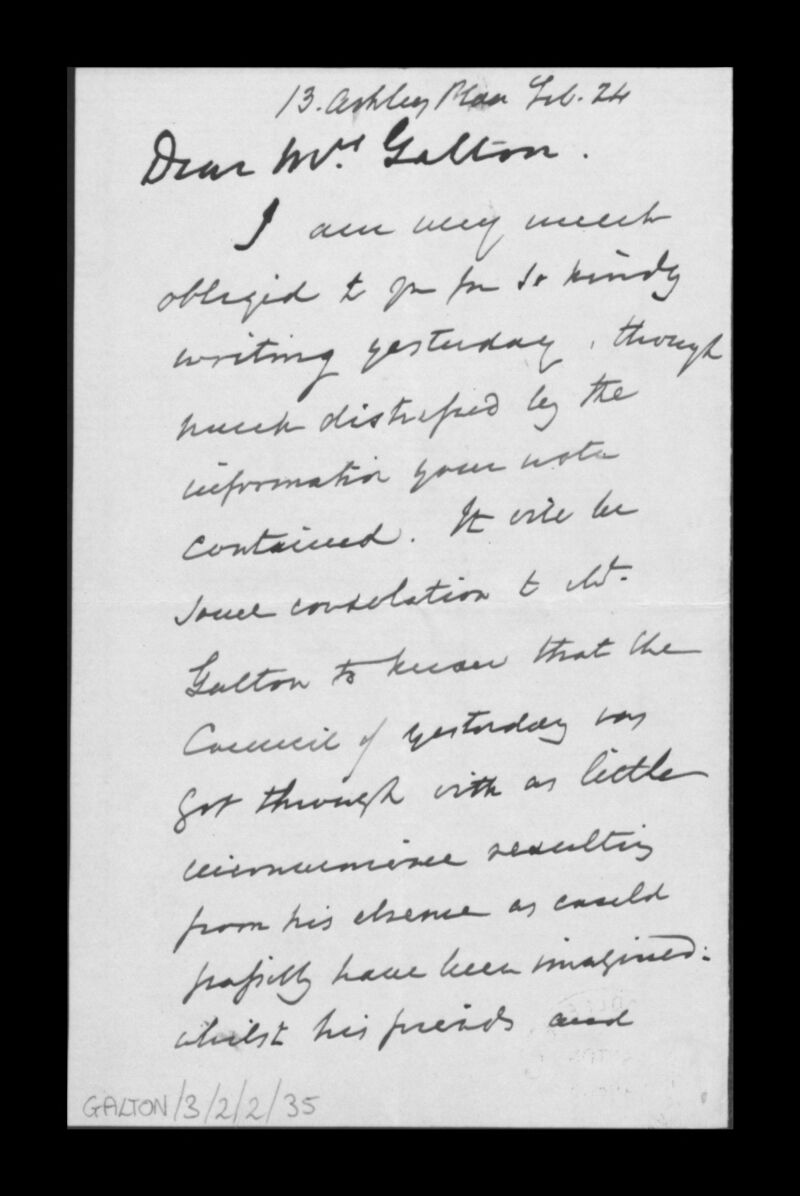 13. Ashley Place Feb. 24
Dear Mrs. Galton.
I am very much
obliged to you for so kindly
writing yesterday, though
much distressed by the
information your note
contained. It will be
some consolation to Mr.
Galton to know that the
Council of yesterday was
got through with as little
inconvenience resulting
from his absence as could
possibly have been imagined:
whilst his friends and
GALTON/3/2/2/35